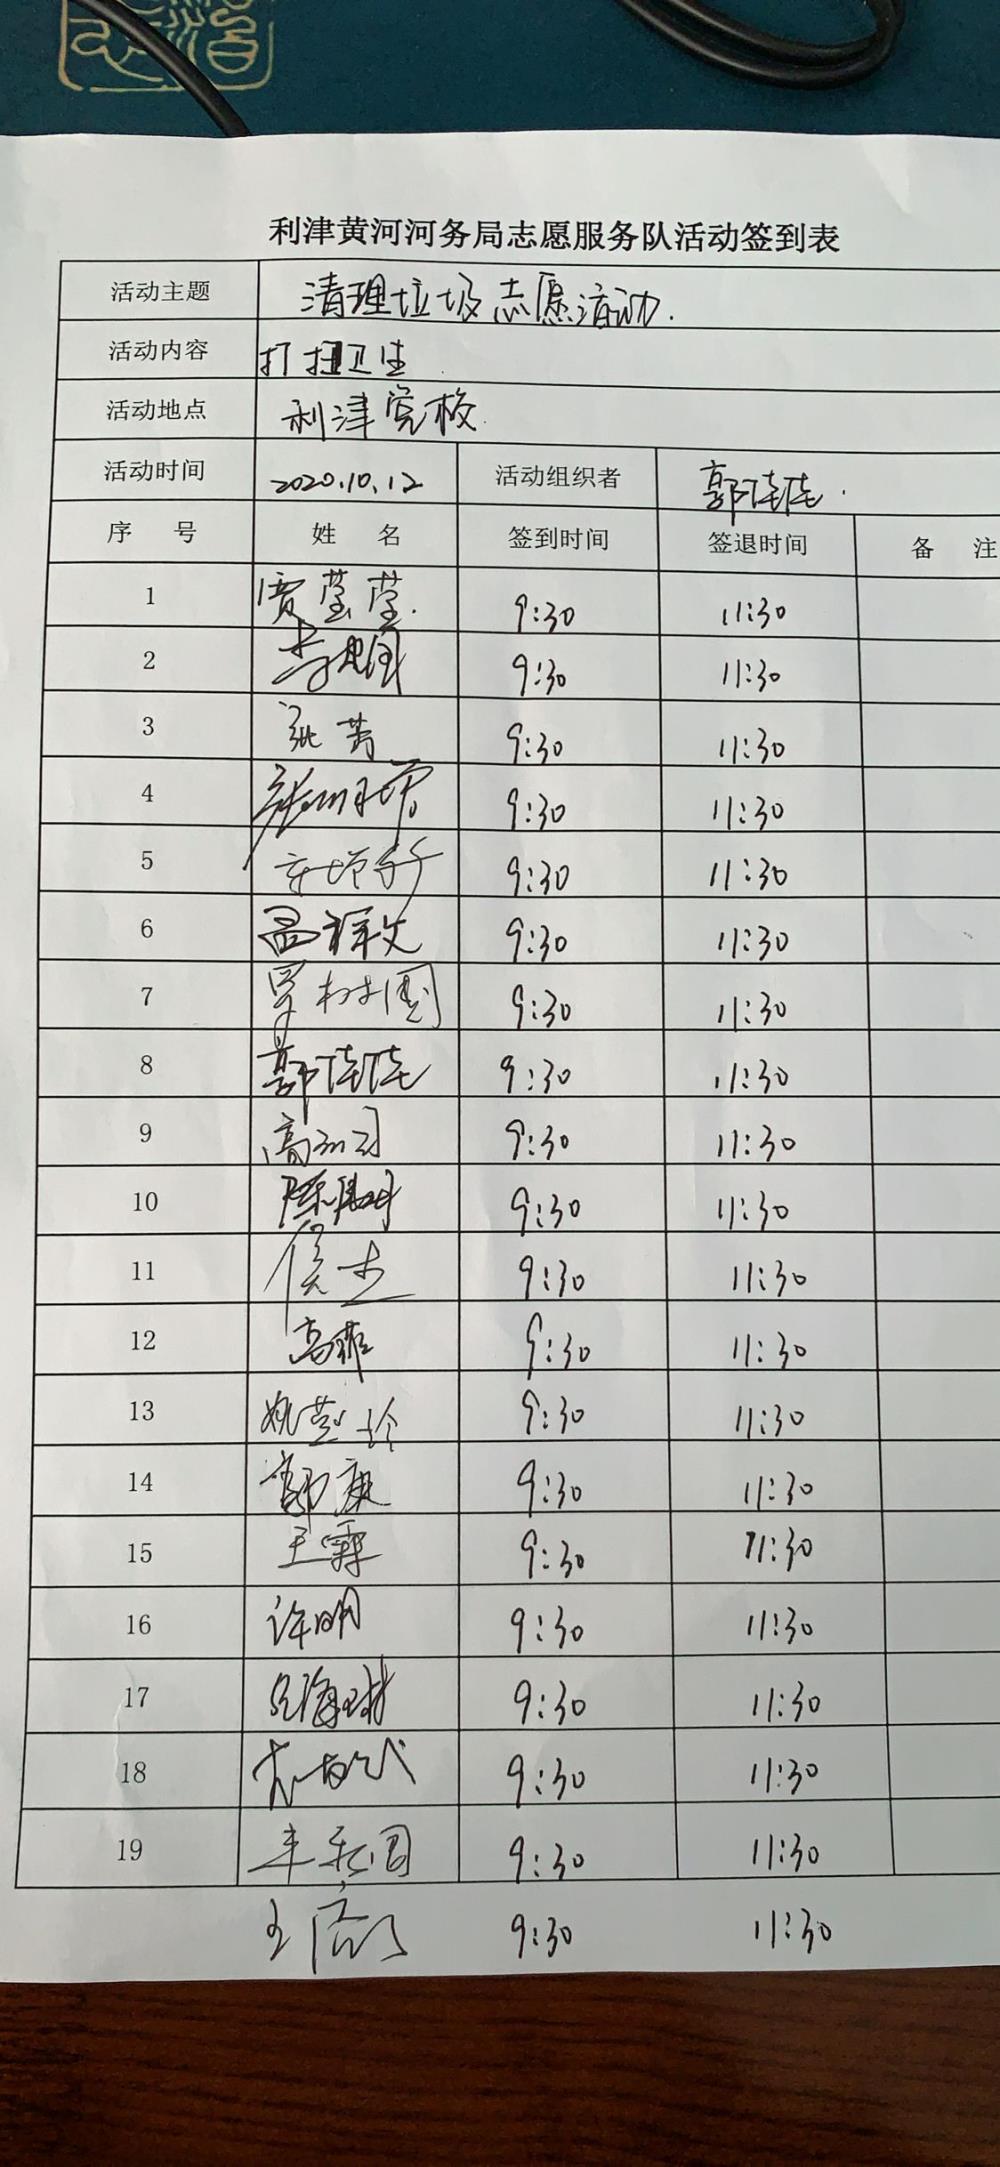 利津黄河河务局志愿服务队活动签到表
活动主题 清理垃圾志愿活动.
活动内容 打扫卫生
活动地点 利津党校.
活动时间 2020.10.12 活动组织者 郭佳佳.
序 号 姓 名 签到时间 签退时间 备 注
1 贾莹莹. 9:30 11:30
2 9:30 11:30
3 张菁 9:30 11:30
4 9:30 11:30
5 9:30 11:30
6 孟祥文 9:30 11:30
7 罗树国 9:30 11:30
8 郭佳佳 9:30 11:30
9 9:30 11:30
10 9:30 11:30
11 侯杰 9:30 11:30
12 高菲 9:30 11:30
13 9:30 11:30
14 郭康 9:30 11:30
15 王霖 9:30 11:30
16 许明 9:30 11:30
17 9:30 11:30
18 9:30 11:30
19 9:30 11:30
9:30 11:30